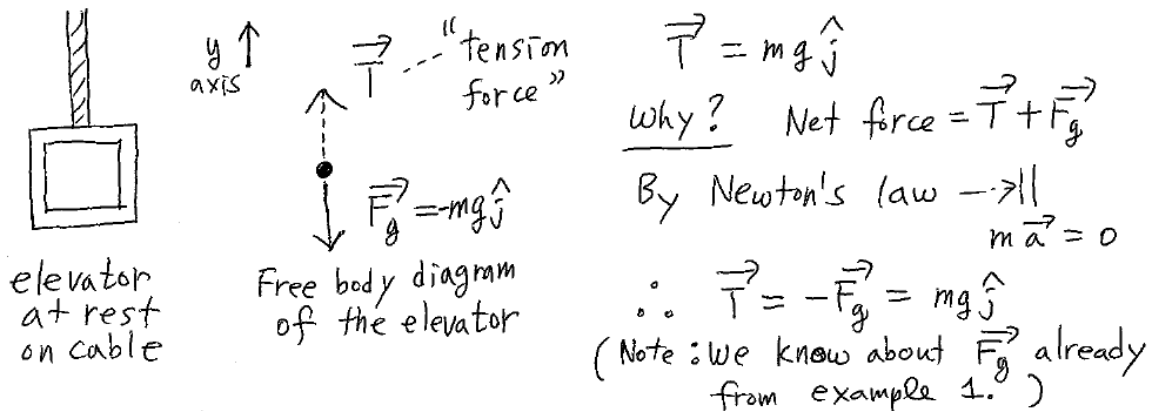 elevator
at rest
on cable
y
axis
T⃗ --- “tension
force”
F⃗_g = -mg ĵ
Free body diagram
of the elevator
T⃗ = mg ĵ
Why? Net force = T⃗ + F⃗_g
By Newton's law --→ ||
m a⃗ = 0
∴ T⃗ = -F⃗_g = mg ĵ
(Note: we know about F⃗_g already
from example 1. )